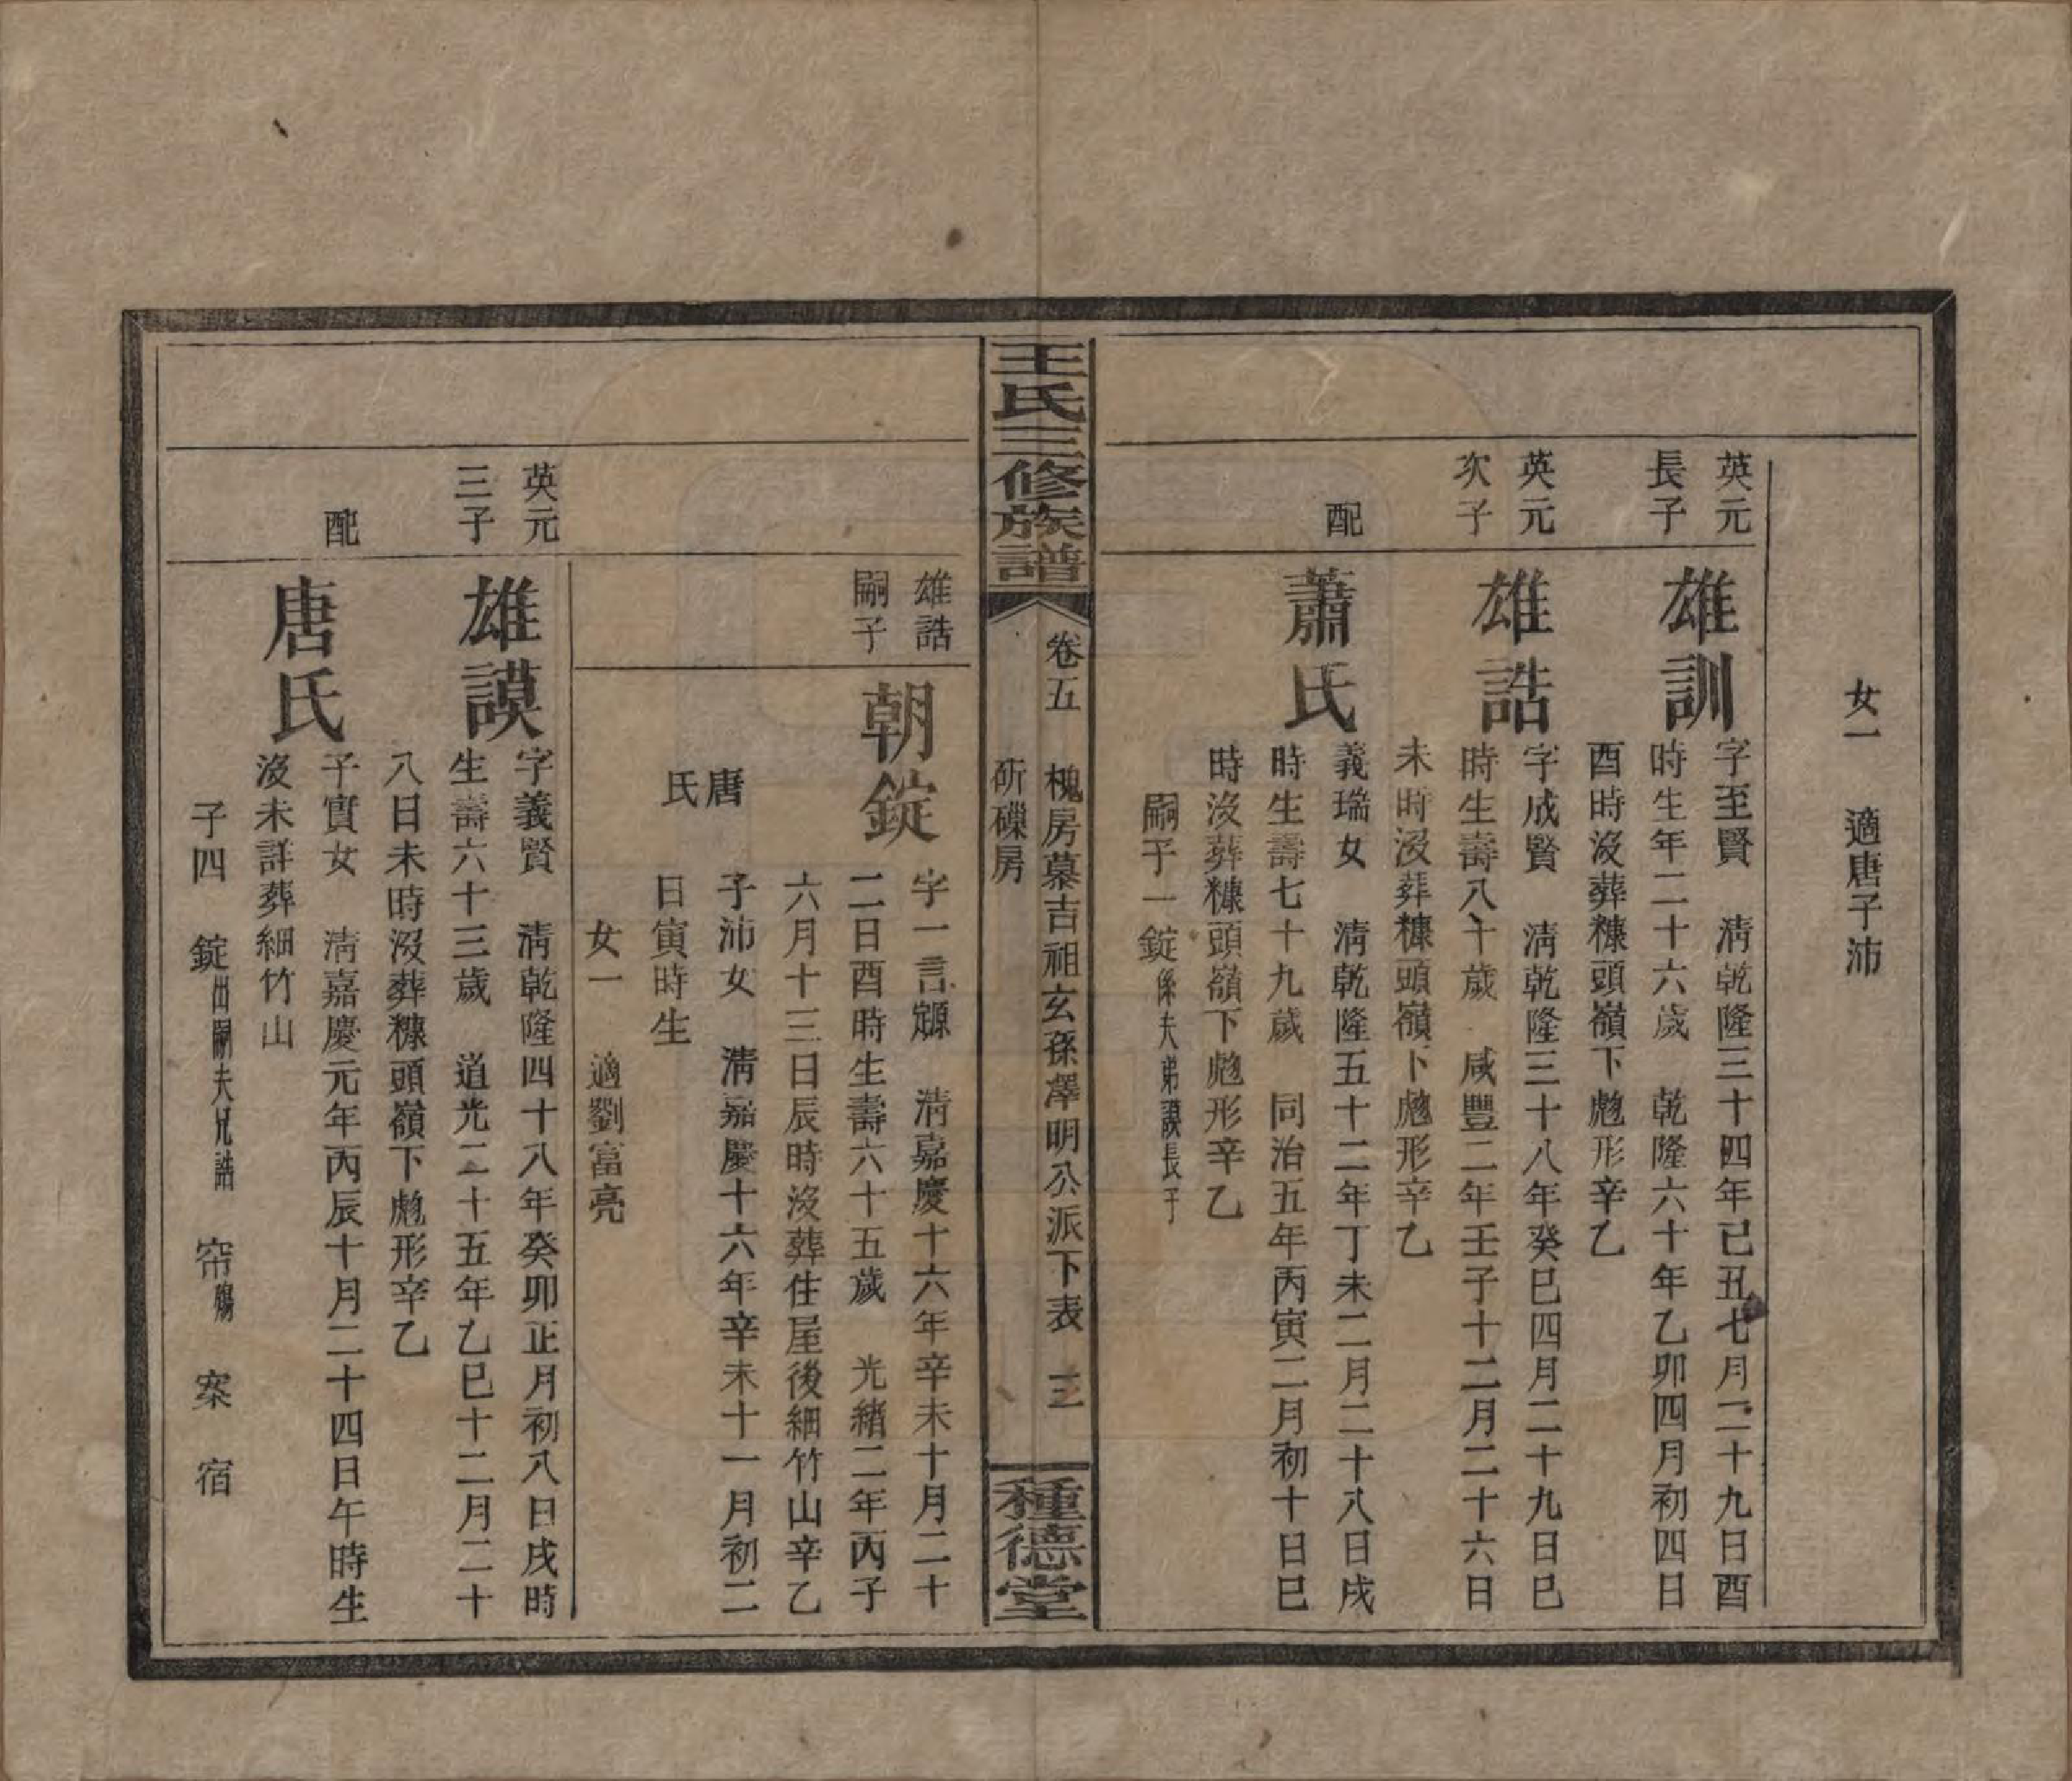 女一　適唐子沛
英元
長子
雄訓
字至賢　淸乾隆三十四年已丑七月二十九日酉
時生年二十六歲　乾隆六十年乙卯四月初四日
酉時沒葬糠頭嶺下虺形辛乙
英元
次子
雄誥
字成賢　淸乾隆三十八年癸巳四月二十九日巳
時生壽八十歲　咸豐二年壬子十二月二十六日
未時沒葬糠頭嶺下虺形辛乙
配
蕭氏
義瑞女　淸乾隆五十二年丁未二月二十八日戌
時生壽七十九歲　同治五年丙寅二月初十日巳
時沒葬糠頭嶺下虺形辛乙
嗣子一錠係夫弟謨長子
王氏三修族譜
卷五　槐房慕吉祖玄孫澤明公派下表　三
斫磜房
種德堂
雄誥
嗣子
朝錠
字一言源定　淸嘉慶十六年辛未十月二十
二日酉時生壽六十五歲　光緒二年丙子
六月十三日辰時沒葬住屋後細竹山辛乙
唐氏
子沛女　淸嘉慶十六年辛未十一月初二
日寅時生
女一　適劉富亮
英元
三子
雄謨
字義賢　淸乾隆四十八年癸卯正月初八日戌時
生壽六十三歲　道光二十五年乙巳十二月二十
八日未時沒葬糠頭嶺下虺形辛乙
配
唐氏
子實女　淸嘉慶元年丙辰十月二十四日午時生
沒未詳葬細竹山
子四　錠出嗣夫兄誥　帘殤　案　宿